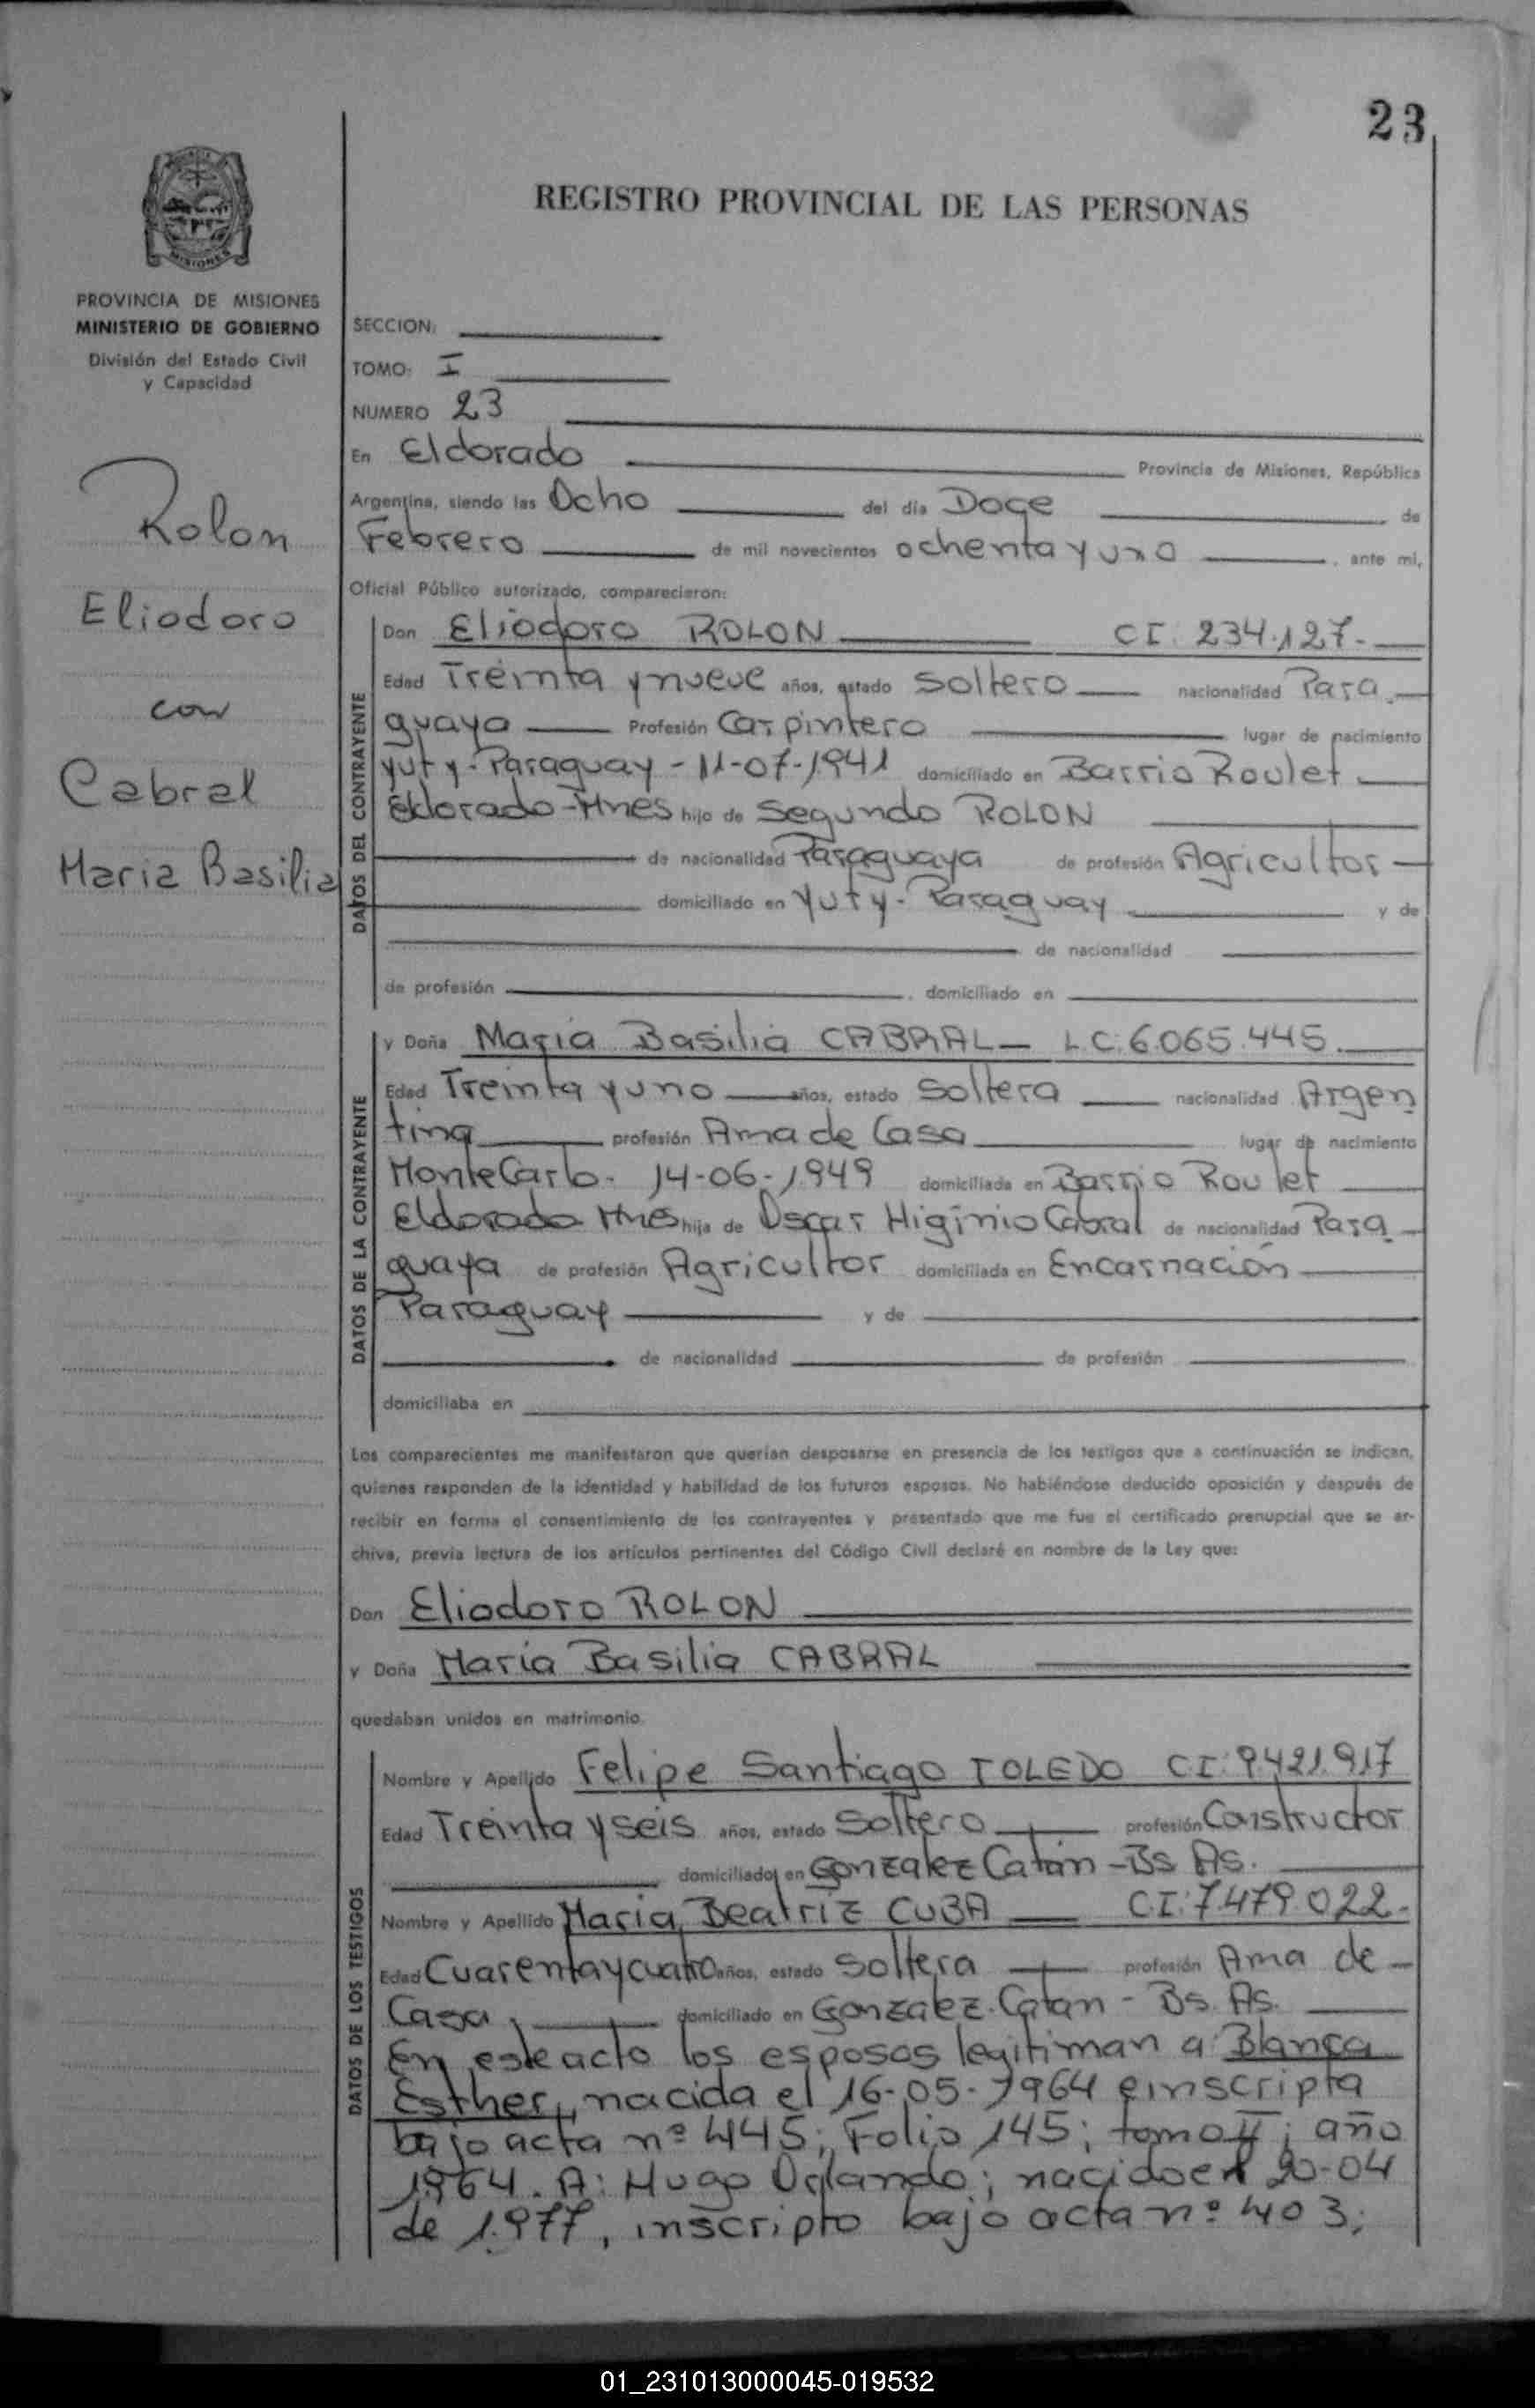 23
REGISTRO PROVINCIAL DE LAS PERSONAS
MISIONES
PROVINCIA DE MISIONES
MINISTERIO DE GOBIERNO
División del Estado Civil
y Capacidad
Rolon
Eliodoro
con
Cabral
Maria Basilia
SECCION:
TOMO: I
NUMERO 23
En Eldorado Provincia de Misiones, República
Argentina, siendo las Ocho del día Doce de
Febrero de mil novecientos ochenta y uno, ante mí,
Oficial Público autorizado, comparecieron:
DATOS DEL CONTRAYENTE
Don Eliodoro ROLON CI: 234.127.-
Edad Treinta y nueve años, estado soltero nacionalidad Para
guaya Profesión Carpintero lugar de nacimiento
Yuty - Paraguay - 11-07-1941 domiciliado en Barrio Roulet
Eldorado - Mnes hijo de Segundo ROLON
de nacionalidad Paraguaya de profesión Agricultor
domiciliado en Yuty - Paraguay y de
de nacionalidad
de profesión , domiciliado en
DATOS DE LA CONTRAYENTE
y Doña Maria Basilia CABRAL - L.C: 6.065.445.
Edad Treinta y uno años, estado soltera nacionalidad Argen
tina profesión Ama de Casa lugar de nacimiento
MonteCarlo - 14-06-1949 domiciliada en Barrio Roulet
Eldorado Mnes hija de Oscar Higinio Cabral de nacionalidad Para
guaya de profesión Agricultor domiciliada en Encarnación
Paraguay y de
de nacionalidad de profesión
domiciliaba en
Los comparecientes me manifestaron que querían desposarse en presencia de los testigos que a continuación se indican,
quienes responden de la identidad y habilidad de los futuros esposos. No habiéndose deducido oposición y después de
recibir en forma el consentimiento de los contrayentes y presentado que me fue el certificado prenupcial que se ar-
chiva, previa lectura de los artículos pertinentes del Código Civil declaré en nombre de la Ley que:
Don Eliodoro ROLON
y Doña Maria Basilia CABRAL
quedaban unidos en matrimonio.
DATOS DE LOS TESTIGOS
Nombre y Apellido Felipe Santiago TOLEDO CI: 9.421.917
Edad Treinta y seis años, estado Soltero profesión Constructor
domiciliado en Gonzalez Catan - Bs As.
Nombre y Apellido Maria Beatriz CUBA C.I: 7.479.022.-
Edad Cuarenta y cuatro años, estado soltera profesión Ama de
Casa domiciliado en Gonzalez Catan - Bs. As.
En este acto los esposos legitiman a: Blanca
Esther, nacida el 16-05-1964 e inscripta
bajo acta nº 445; Folio 145; tomo II; año
1964. A: Hugo Orlando; nacido el 20-04
de 1.977, inscripto bajo acta nº 403;
01_231013000045-019532